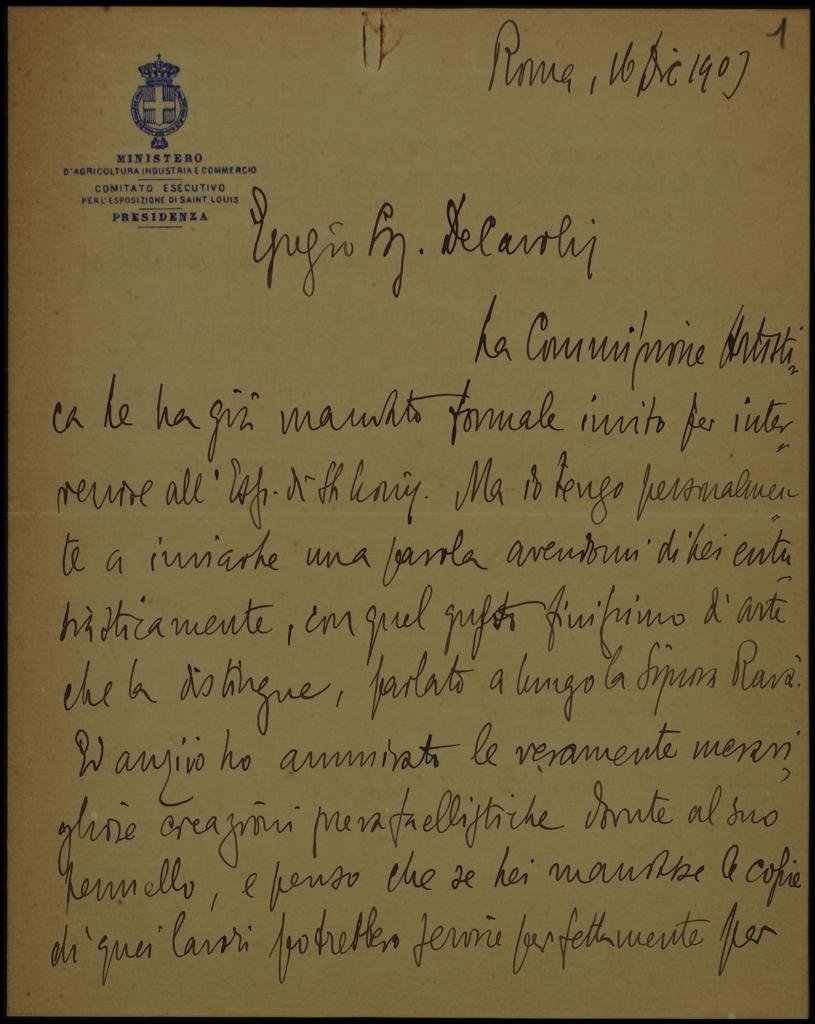 1
Roma, 16 Dic 1903
MINISTERO
D'AGRICOLTURA INDUSTRIA E COMMERCIO
COMITATO ESECUTIVO
PER L'ESPOSIZIONE DI SAINT LOUIS
PRESIDENZA
Egregio Sig. DeCarolis
La Commissione Artisti=
ca Le ha già mandato formale invito per inter=
venire all'Esp. di St Louis. Ma io tengo personalmen=
te a inviarle una parola avendomi di Lei entu=
siasticamente, con quel gusto finissimo d'arte
che la distingue, parlato a lungo la Signora Ravà.
Ed anzi io ho ammirato le veramente meravi=
gliose creazioni prerafaellistiche dovute al suo
pennello, e penso che se Lei mandasse le copie
di quei lavori potrebbero servire perfettamente per